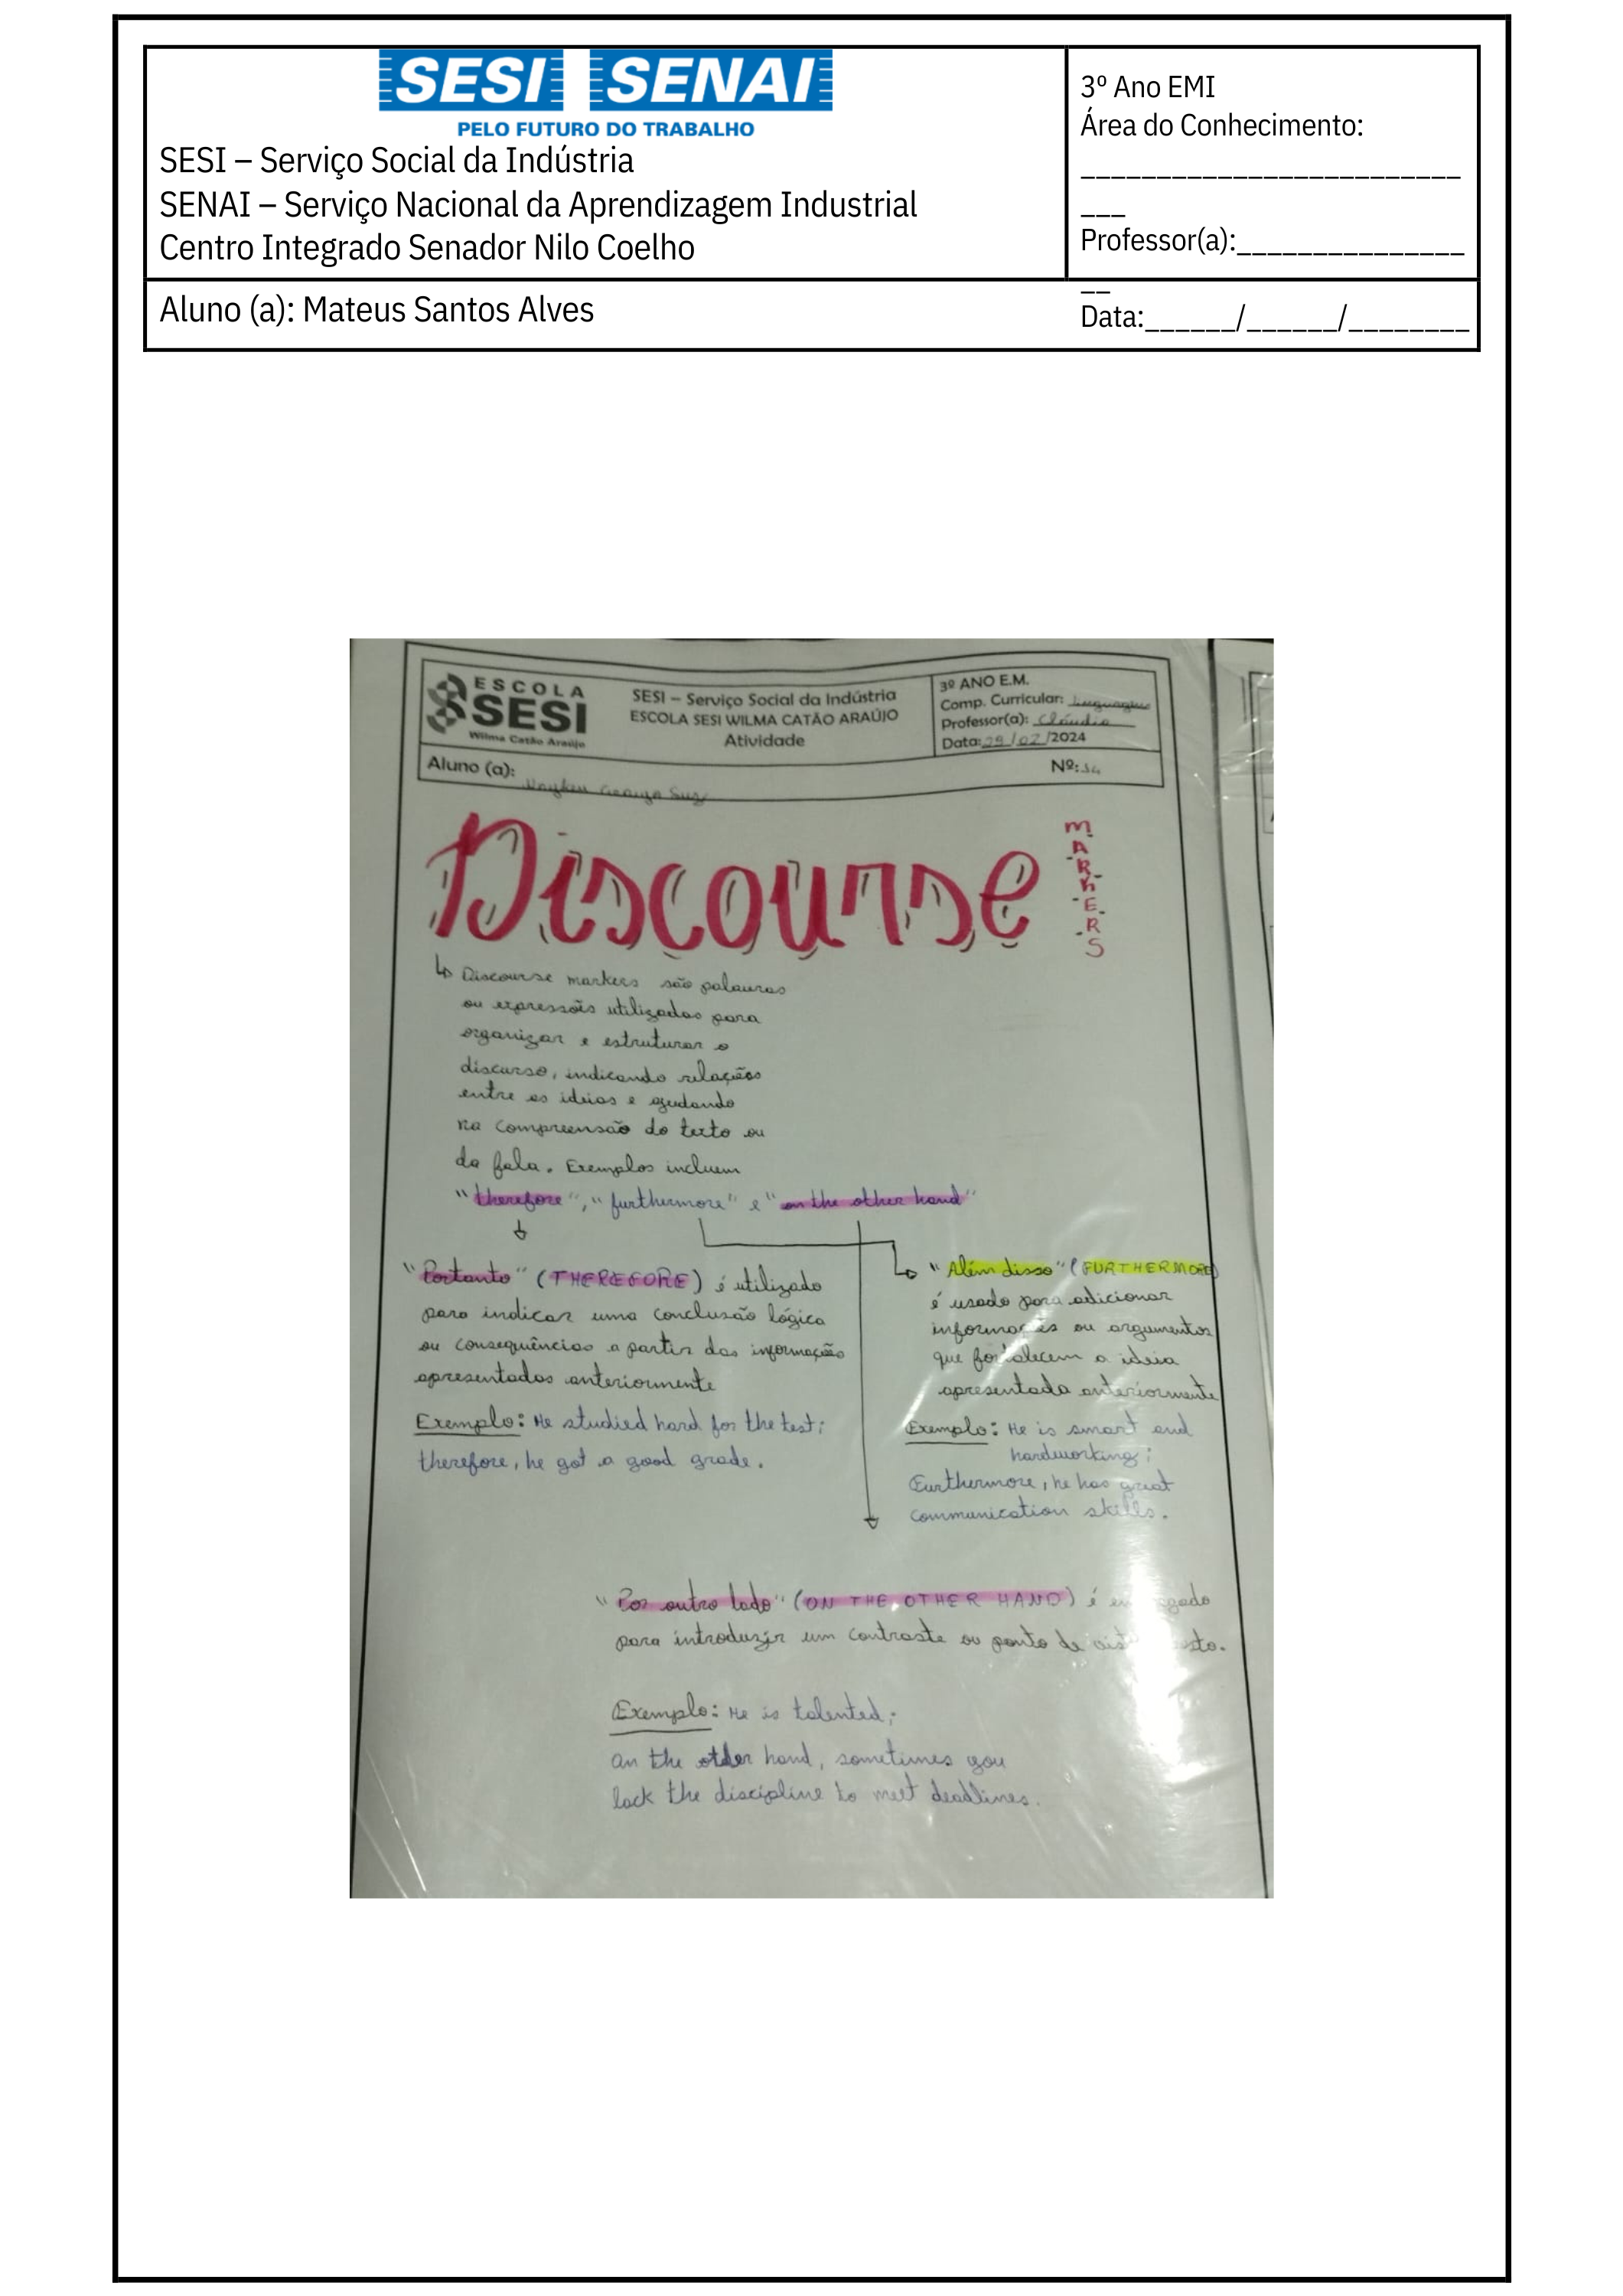 SESI SENAI
PELO FUTURO DO TRABALHO
SESI – Serviço Social da Indústria
SENAI – Serviço Nacional da Aprendizagem Industrial
Centro Integrado Senador Nilo Coelho
3º Ano EMI
Área do Conhecimento:
_________________________
___
Professor(a):_______________
__
Data:______/______/________
Aluno (a): Mateus Santos Alves
ESCOLA
SESI
Wilma Catão Araújo
SESI – Serviço Social da Indústria
ESCOLA SESI WILMA CATÃO ARAÚJO
Atividade
3º ANO E.M.
Comp. Curricular: Linguagens
Professor(a): Cláudia
Data: 29/02/2024
Aluno (a):
Nº:
Discourse
MARKERS
Discourse markers são palavras
ou expressões utilizadas para
organizar e estruturar o
discurso, indicando relações
entre as ideias e ajudando
na compreensão do texto ou
da fala. Exemplos incluem
"therefore", "furthermore" e "on the other hand"
"Portanto" (THEREFORE) é utilizado
para indicar uma conclusão lógica
ou consequências a partir das informações
apresentadas anteriormente
Exemplo: He studied hard for the test;
therefore, he got a good grade.
"Além disso" (FURTHERMORE)
é usado para adicionar
informações ou argumentos
que fortalecem a ideia
apresentada anteriormente
Exemplo: He is smart and
hardworking;
Furthermore, he has great
communication skills.
"Por outro lado" (ON THE OTHER HAND) é
para introduzir um contraste ou ponto de
Exemplo: He is talented;
on the other hand, sometimes you
lack the discipline to meet deadlines.